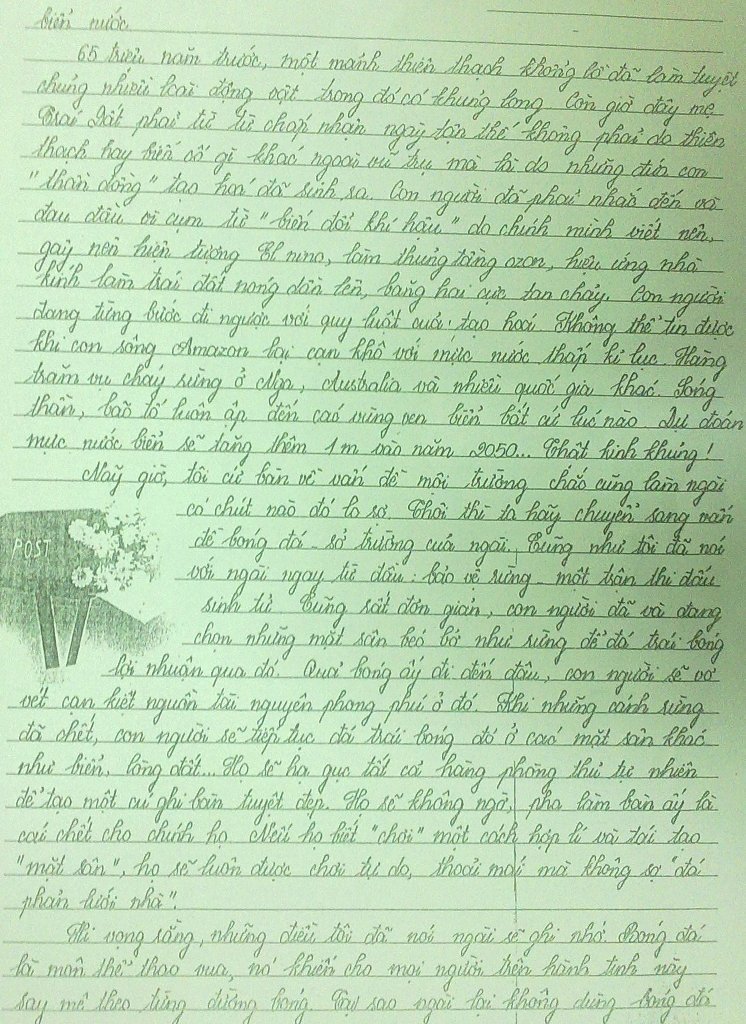 biển nước.
65 triệu năm trước, một mảnh thiên thạch khổng lồ đã làm tuyệt
chủng nhiều loài động vật trong đó có khủng long. Còn giờ đây mẹ
Trái Đất phải từ từ chấp nhận ngày tận thế không phải do thiên
thạch hay biến cố gì khác ngoài vũ trụ mà là do những đứa con
"thần đồng" tạo hoá đã sinh ra. Con người đã phải nhắc đến và
đau đầu vì cụm từ "biến đổi khí hậu" do chính mình viết nên,
gây nên hiện tượng El nino, làm thủng tầng ozon, hiệu ứng nhà
kính làm trái đất nóng dần lên, băng hai cực tan chảy. Con người
đang từng bước đi ngược với quy luật của tạo hoá. Không thể tin được
khi con sông Amazon lại cạn khô với mức nước thấp kỉ lục. Hàng
trăm vụ cháy rừng ở Nga, Australia và nhiều quốc gia khác. Sóng
thần, bão tố luôn ập đến các vùng ven biển bất cứ lúc nào. Dự đoán
mực nước biển sẽ tăng thêm 1m vào năm 2050... Thật kinh khủng!
Nãy giờ, tôi cứ bàn về vấn đề môi trường chắc cũng làm ngài
có chút nào đó lo sợ. Thôi thì ta hãy chuyển sang vấn
đề bóng đá - sở trường của ngài. Cũng như tôi đã nói
POST
với ngài ngay từ đầu: bảo vệ rừng - một trận thi đấu
sinh tử. Cũng rất đơn giản, con người đã và đang
chọn những mặt sân béo bở như rừng để đá trái bóng
lợi nhuận qua đó. Quả bóng ấy đi đến đâu, con người sẽ vơ
vét cạn kiệt nguồn tài nguyên phong phú ở đó. Khi những cánh rừng
đã chết, con người sẽ tiếp tục đá trái bóng đó ở các mặt sân khác
như biển, lòng đất... Họ sẽ hạ gục tất cả hàng phòng thủ tự nhiên
để tạo một cú ghi bàn tuyệt đẹp. Họ sẽ không ngờ, pha làm bàn ấy là
cái chết cho chính họ. Nếu họ biết "chơi" một cách hợp lí và tái tạo
"mặt sân", họ sẽ luôn được chơi tự do, thoải mái mà không sợ "đá
phản lưới nhà".
Hi vọng rằng, những điều tôi đã nói ngài sẽ ghi nhớ. Bóng đá
là môn thể thao vua, nó khiến cho mọi người trên hành tinh này
say mê theo từng đường bóng. Tại sao ngài lại không dùng bóng đá